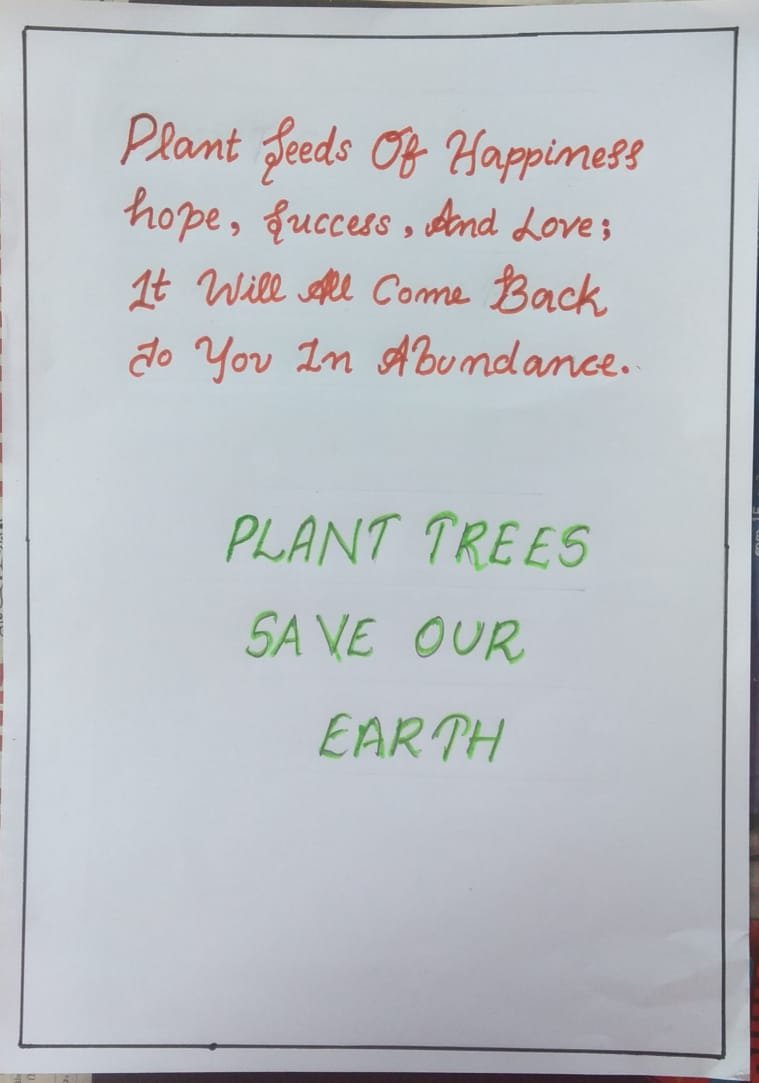 Plant Seeds Of Happiness
hope, Success, And Love;
It Will All Come Back
To You In Abundance.
PLANT TREES
SAVE OUR
EARTH